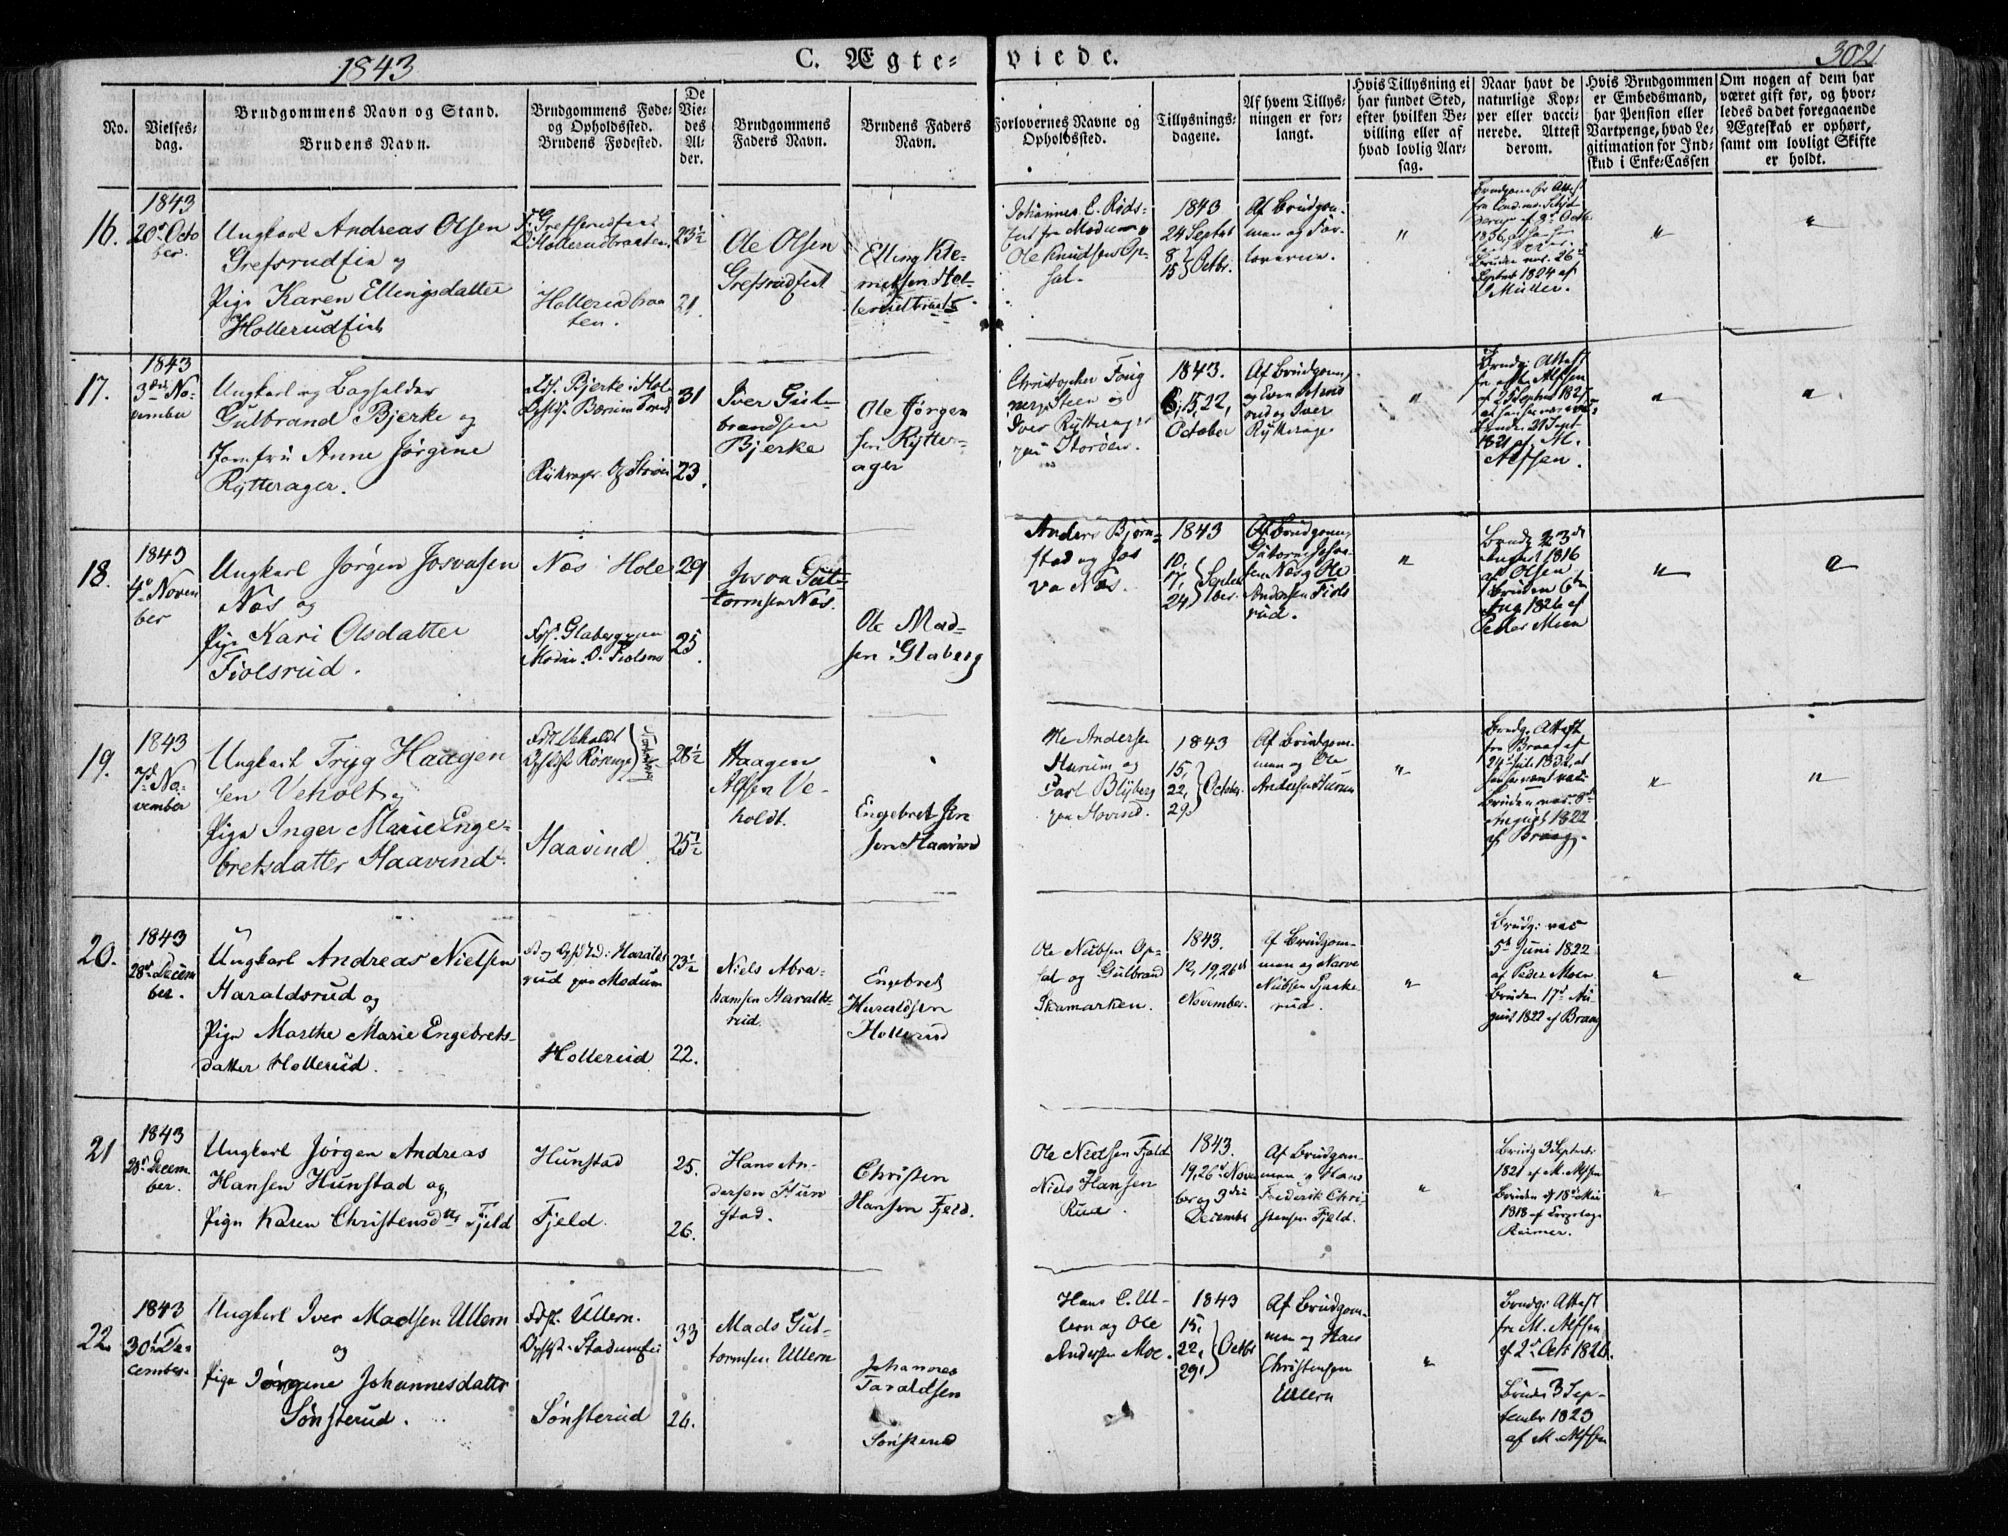 1843
C. Ægte-
viede.
302
No.
Vielses-
dag.
Brudgommens Navn og Stand.
Brudens Navn.
Brudgommens Føde-
og Opholdssted.
Brudens Fødested.
De
Vie-
des
Al-
der.
Brudgommens
Faders Navn.
Brudens Faders
Navn.
Forlovernes Navne og
Opholdssted.
Tillysnings-
dagene.
Af hvem Tillys-
ningen er for-
langt.
Hvis Tillysning ei
har fundet Sted,
efter hvilken Be-
villing eller af
hvad lovlig Aar-
sag.
Naar havt de
naturlige Kop-
per eller vacci-
nerede. Attest
derom.
Hvis Brudgommen
er Embedsmand,
har Pension eller
Vartpenge, hvad Le-
gitimation for Ind-
skud i Enke-Cassen
Om nogen af dem har
været gift før, og hvor-
ledes da det foregaaende
Ægteskab er ophørt,
samt om lovligt Skifte
er holdt.
16.
1843
20de Octo
ber.
Ungkarl Andreas Olsen
Grefsrudeie og
Pige Karen Ellingsdatter
Hollerudeie
Hollerudbraa
ten.
23½
21.
Ole Olsen
Grefsrudeie
Elling Kle-
metsen Hol-
lerud
Johannes E. Røds-
Modum
Ole Knudsen Op-
sal.
1843
24 Septbr
8,
15 } Octbr.
Af Brudgom-
men og For-
loverne.
Bruden vac. 26
Septbr 1824 af
Müller.
17.
1843
3die No-
vember
Ungkarl og
Gulbrand Bjerke og
Jomfru Anne Jørgine
Rytterager.
Bjerke i Hole
31
23.
Iver Gul-
brandsen
Bjerke
Ole Jørgen-
sen Rytter-
ager
Christopher
Steen og
Iver Rytterager
paa Storøen.
1843.
8, 15, 22,
October
Af Brudgom
og Iver
Rytterager
Brudg. Attest
1821 af M.
Alfsen.
18.
1843
4de Novem
ber
Ungkarl Jørgen Josvasen
Næs og
Pige Kari Olsdatter
Fiolsrud.
Næs Hole
Fdt. Glaberg paa
Modum. O. Fiolsrud
29
25.
Josva Gut-
tormsen Næs.
Ole Mad-
sen Glaberg
Anders Bjørn-
stad og Jos
va Næs.
1843
10,
17,
24 } Septem
ber.
Af Brudgom,
Guttorm Josva-
sen Næs og Ole
Andersen Fiols
rud.
Brudg. 23de
August 1816
af Olsen
Bruden 6te
Aug 1826 af
Peder Moen
19.
1843
7de No-
vember
Ungkarl Tryg Haagen
sen Veholt og
Pige Inger Marie Enge-
bretsdatter Haavind.
Fdt Veholdt
Haavind.
28½
25½
Haagen
Alfsen Ve-
holdt.
Engebret Jen
sen Haavind
Ole Andersen
Hurum og
Carl Blyberg
paa Hovind.
1843
15,
22,
29 } October.
Af Brudgom-
men og Ole
Andersen Hurum
Brudg. Attest
fra Braag af
Bruden vac. 8de
August 1822
af Braag.
20.
1843
28de Decem
ber.
Ungkarl Andreas Nielsen
Haraldsrud og
Pige Marthe Marie Engebrets-
datter Hollerud.
Haralds
rud paa Modum
Hollerud.
23½
22.
Niels Abra-
hamsen Haralds-
rud.
Engebret
Haraldsen
Hollerud
Ole Nielsen Op-
sal og Gulbrand
Skamarken.
1843.
12, 19, 26de
November.
Af Brudgom-
men og Narve
Nielsen
rud.
Brudg: vac
5te Juni 1822
af Peder Moen
Bruden 17de Au-
gust 1822 af Braag
21
1843
28de Decem-
ber.
Ungkarl Jørgen Andreas
Hansen Hunstad og
Pige Karen Christensdtr Fjeld
Hunstad
Fjeld.
25.
26.
Hans An-
dersen Hun
stad.
Christen
Hansen Fjeld.
Ole Nielsen Fjeld
Niels Hansen
Rud.
1843.
19, 26de Novem
ber og 3die
December
Af Brudgom-
men og Hans
Frederik Chri-
stensen Fjeld.
Brudg 3 Septemb:
1821 af M. Alfsen
Bruden af 18de Mai
1818 af
Reimer.
22.
1843
30te De-
cember.
Ungkarl Iver Madsen Ullern
og
Pige Jørgine Johannesdatter
Sønsterud.
Fdt. Ullern.
Opht. Stadumeie
Sønsterud
33
26.
Mads Gut-
tormsen Ullern
Johannes
Taraldsen
Sønsterud
Hans C. Ul-
lern og Ole
Andersen Moe.
1843
15,
22,
29, } Octbr
Af Brudgom-
men og Hans
Christensen
Ullern
Brudg: Attest
fra M. Alfsen
af 2de Octb 1826.
Bruden 3 Sep-
tember 1823
af M. Alfsen